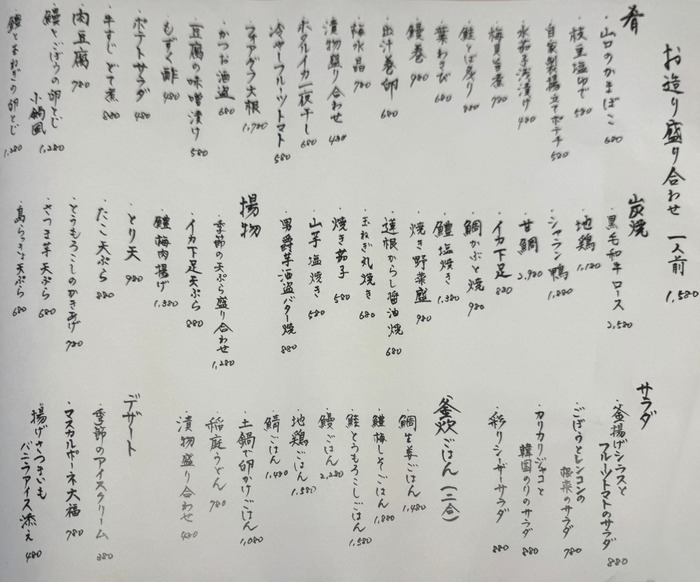 お造り盛り合わせ 一人前 1,580
肴
・山口のかまぼこ 680
・枝豆塩ゆで 580
・自家製揚立てポテチ 580
・水茄子浅漬け 480
・梅貝旨煮 780
・鮭とば炙り 880
・葉わさび 680
・鰻巻 980
・出汁巻卵 680
・梅水晶 780
・漬物盛り合わせ 480
・ホタルイカ一夜干し 680
・冷やーフルーツトマト 580
・フォアグラ大根 1,780
・かつお酒盗 680
・豆腐の味噌漬け 580
・もずく酢 480
・ポテトサラダ 480
・牛すじどて煮 880
・肉豆腐 980
・鰻とごぼうの卵とじ
小鍋風 1,280
・鱧と玉ねぎの卵とじ 1,280
炭焼
・黒毛和牛ロース 2,580
・地鶏 1,180
・シャラン鴨 1,880
・甘鯛 2,980
・イカ下足 880
・鯛かぶと焼 980
・鱧塩焼き 1,380
・焼き野菜盛 980
・蓮根からし醤油焼 680
・玉ねぎ丸焼き 680
・焼き茄子 580
・山芋塩焼き 580
・男爵芋酒盗バター焼 880
揚物
・季節の天ぷら盛り合わせ 1,280
・イカ下足天ぷら 880
・鱧梅肉揚げ 1,380
・とり天 980
・たこ天ぷら 880
・とうもろこしのかきあげ 780
・さつま芋天ぷら 680
・島らっきょ天ぷら 680
サラダ
・釜揚げシラスと
フルーツトマトのサラダ 880
・ごぼうとレンコンの
根菜のサラダ 780
・カリカリジャコと
韓国のりのサラダ 880
・彩りシーザーサラダ 880
釜炊ごはん(二合)
・鯛生姜ごはん 1,480
・鱧梅しそごはん 1,880
・鮭とうもろこしごはん 1,580
・鰻ごはん 2,280
・地鶏ごはん 1,580
・鯖ごはん 1,480
・土鍋で卵かけごはん 1,080
・稲庭うどん 980
・漬物盛り合わせ 480
デザート
・季節のアイスクリーム 380
・マスカルポーネ大福 780
・揚げさつまいも
バニラアイス添え 480